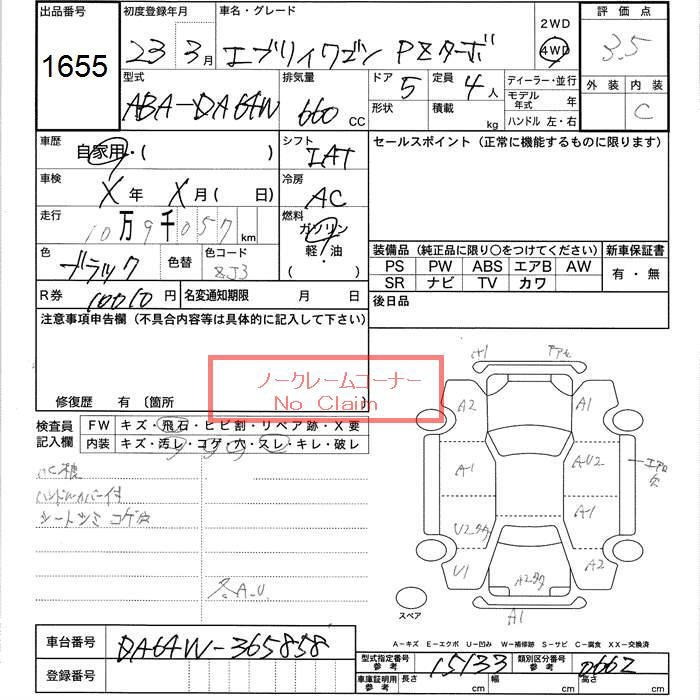 出品番号
1655
初度登録年月
23 3月
車名・グレード
エブリィワゴン PZターボ
2WD
4WD
評価点
3.5
外装 内装
C
型式
ABA-DA64W
排気量
660 CC
ドア 5
形状
定員 4人
積載 kg
ディーラー・並行
モデル年式 年
ハンドル 左・右
車歴
自家用・( )
シフト
IAT
セールスポイント(正常に機能するものに限ります)
車検
X年 X月( 日)
冷房
AC
走行
10万9千057km
燃料
ガソリン
軽・油
( )
色
ブラック
色替
色コード
ZJ3
装備品(純正品に限り〇をつけてください)
PS PW ABS エアB AW
SR ナビ TV カワ
新車保証書
有・無
R券 10010円
名変通知期限 月 日
後日品
注意事項申告欄(不具合内容等は具体的に記入して下さい)
ノークレームコーナー
No Claim
修復歴 有 〔箇所
検査員記入欄
FW キズ・飛石・ヒビ割・リペア跡・X要
内装 キズ・汚レ・コゲ・穴・スレ・キレ・破レ
ハンドルカバー付
シートシミ コゲ穴
各A.U.
A2 A1
A1 AU2
エアロ欠
A1
U2
U1 A2
A2
A1
スペア
A-キズ E-エクボ U-凹み W-補修跡 S-サビ C-腐食 XX-交換済
車台番号
DA64W-365858
登録番号
型式指定番号 参考 15133
類別区分番号 参考 0662
車庫証明用 参考 長さ cm 幅 cm 高さ cm